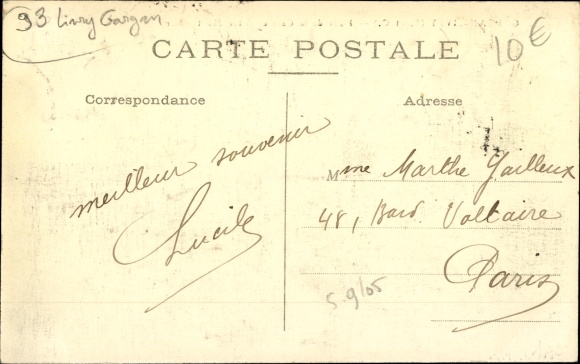 93 Livry Gargan
10€
CARTE POSTALE
Correspondance
Adresse
meilleur souvenir
Lucile
Mme Marthe Jailleux
48, Bard. Voltaire
Paris
S. 9/05